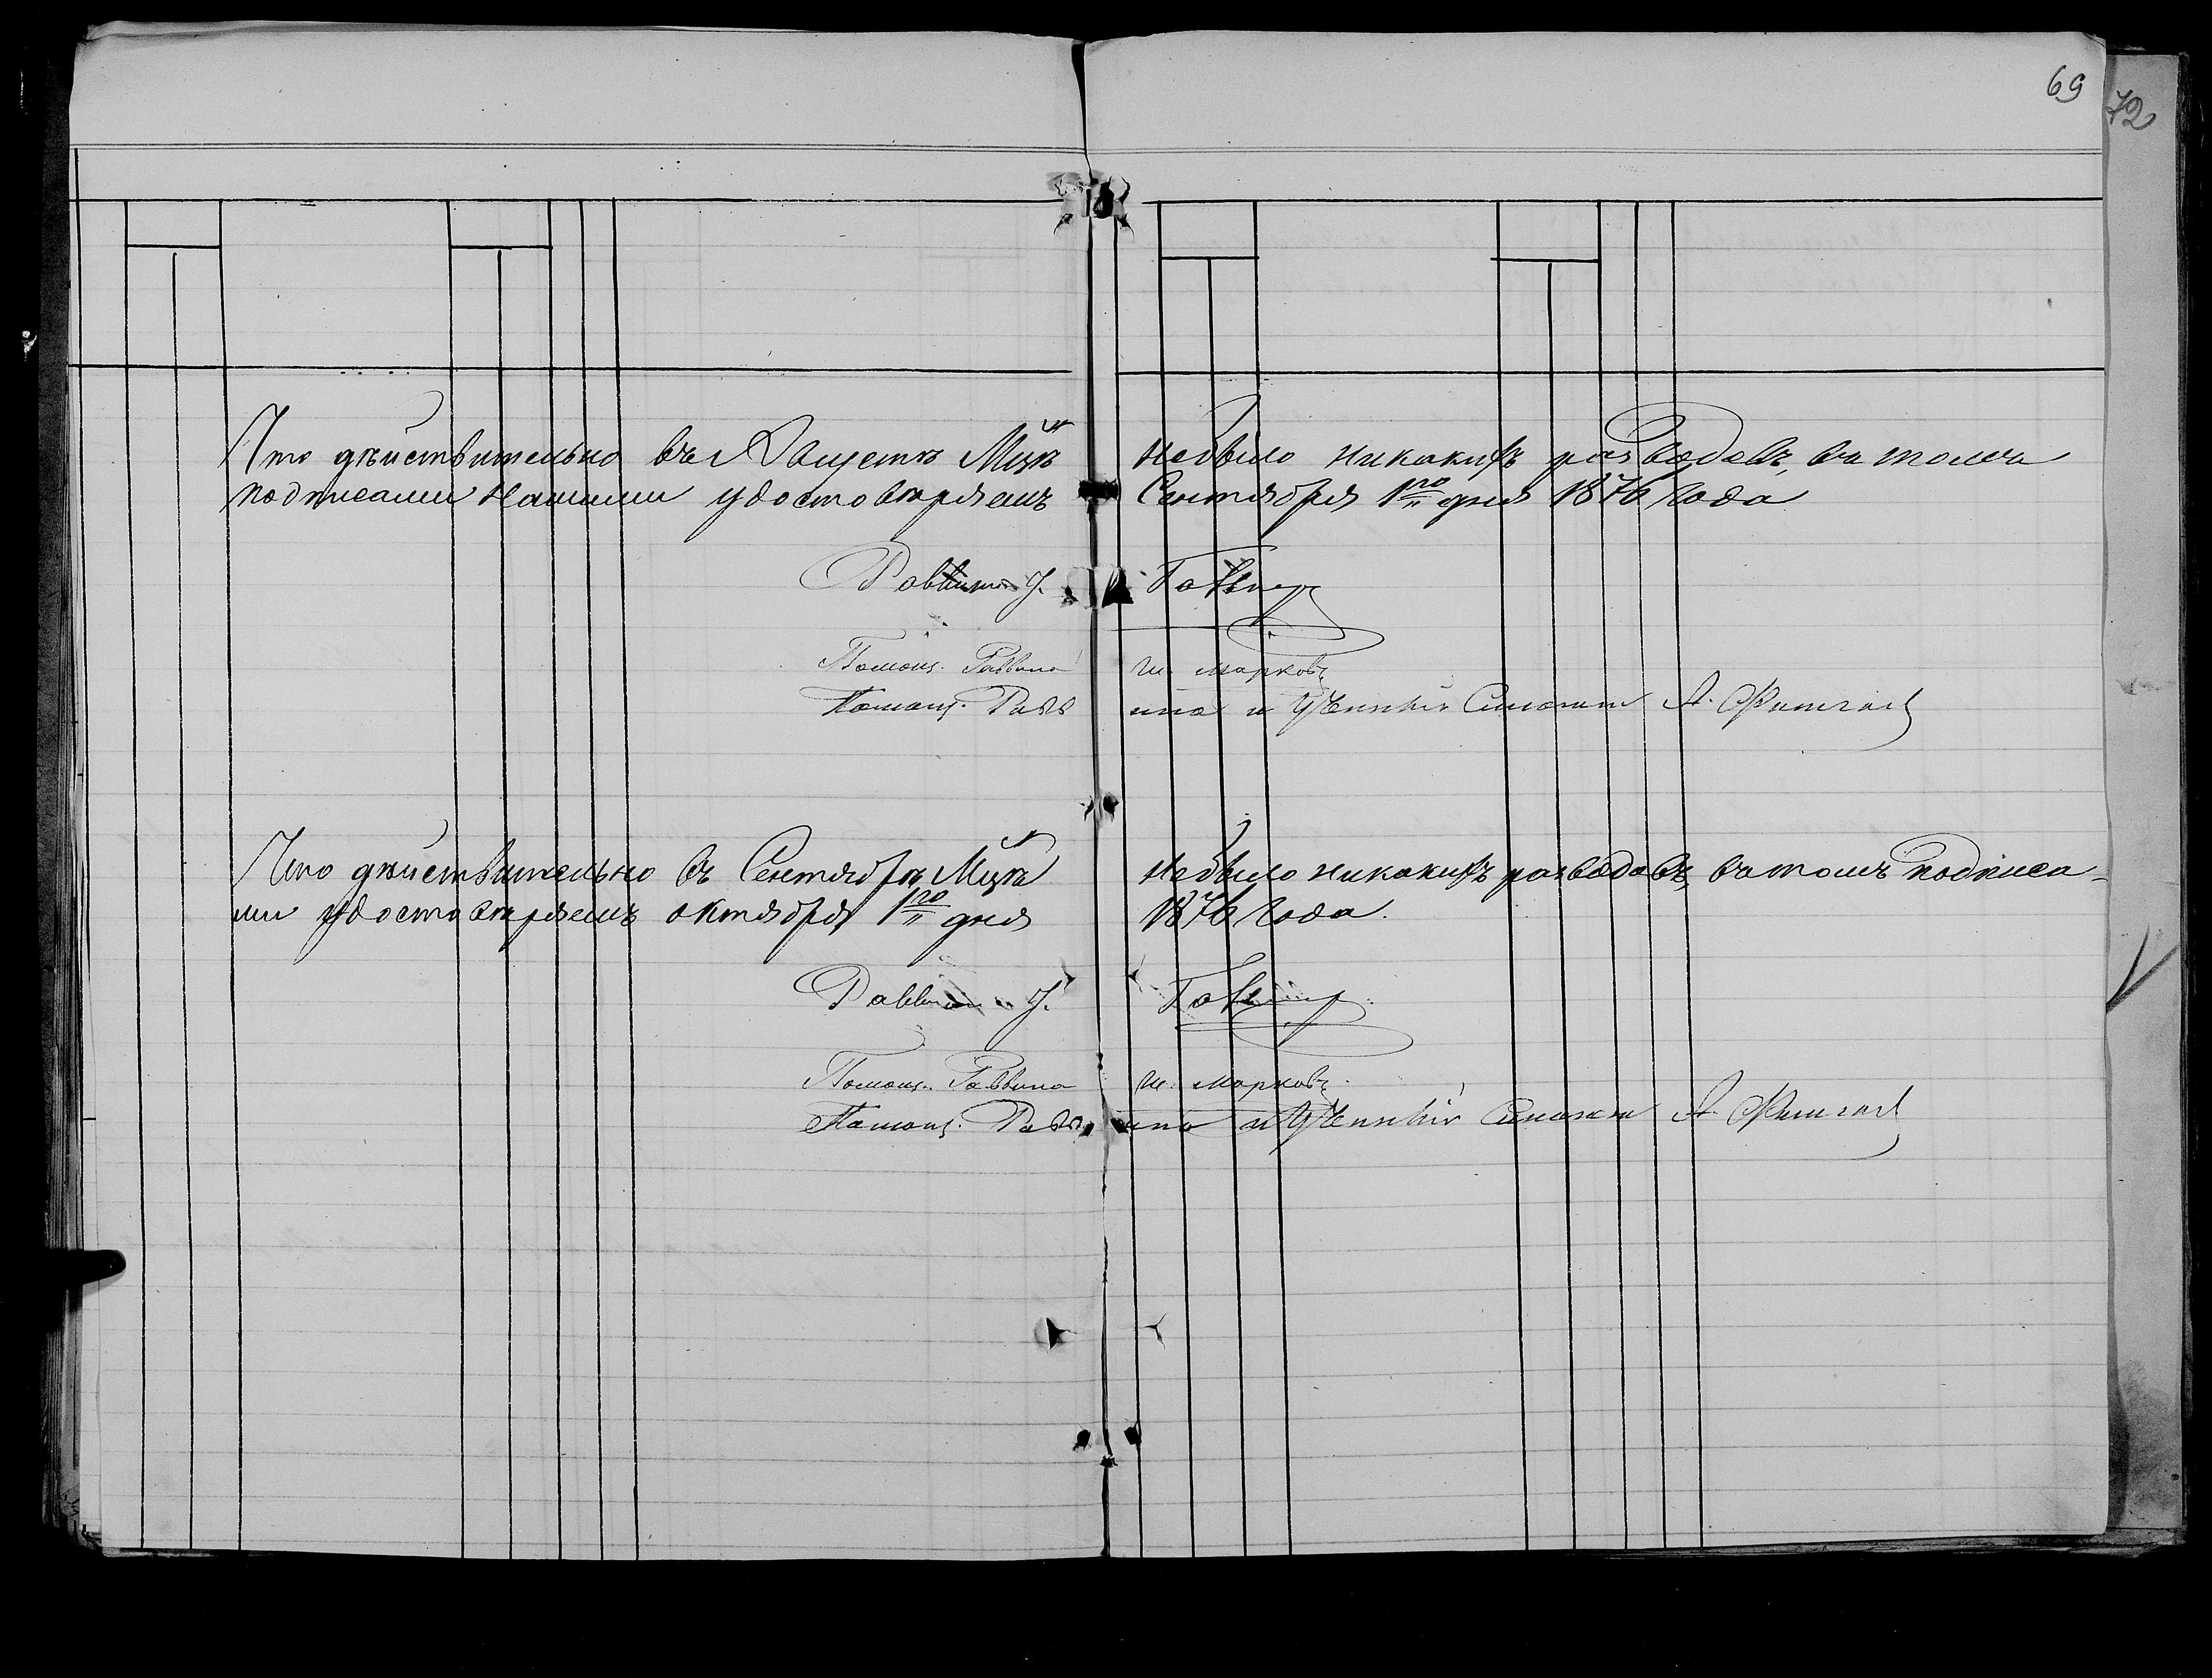 69
72
Что дѣйствительно въ Августѣ Мцѣ небыло никакихъ разводовъ, въ томъ
подписами нашими удостовѣряемъ Сентября 1го дня 1876 Года
Раввинъ
Помощ. Раввина Ш. Марковъ
Помощ. Раввина и А.
Что дѣйствительно въ Сентябрѣ Мцѣ небыло никакихъ разводовъ, въ томъ подписа-
ми удостовѣряемъ октября 1го дня 1876 Года.
Раввинъ
Помощ. Раввина Ш. Марковъ
Помощ. Раввина и А.